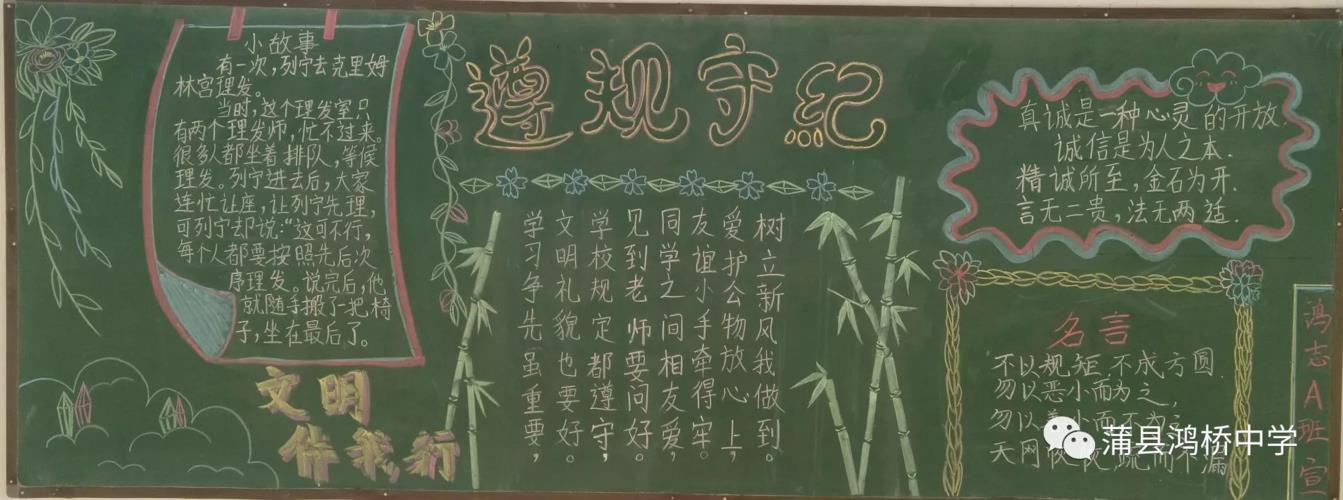 小故事
有一次,列宁去克里姆
林宫理发。
当时,这个理发室只
有两个理发师,忙不过来。
很多人都坐着排队,等候
理发。列宁进去后,大家
连忙让座,让列宁先理,
可列宁却说:“这可不行,
每个人都要按照先后次
序理发。说完后,他
就随手搬了一把椅
子,坐在最后了。
文明
伴我行
遵规守纪
学习争先虽重要,
文明礼貌也要好。
学校规定都遵守,
见到老师要问好。
同学之间相友爱,
友谊小手牵得牢。
爱护公物放心上,
树立新风我做到。
真诚是一种心灵的开放.
诚信是为人之本.
精诚所至,金石为开.
言无二贵,法无两适.
名言
不以规矩,不成方圆.
勿以恶小而为之,
勿以小而不
天网
鸿志A班宣
蒲县鸿桥中学